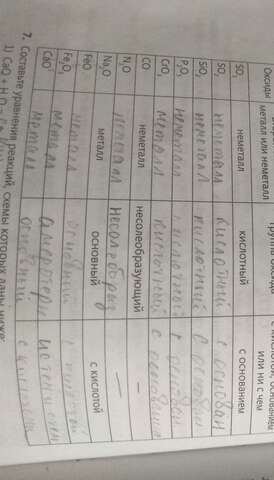 Оксиды металл или неметалл группа оксида с кислотой, основанием или ни с чем
SO₂ неметалл кислотный с основанием
SO₃ неметалл кислотный с основан
SiO₂ неметалл кислотный с основан
P₂O₅ неметалл кислотный с основан
CrO₃ металл кислотный с основани
CO неметалл несолеобразующий —
N₂O неметалл несолеобразу —
Na₂O металл основный с кислотой
FeO металл основный с кислотой
Fe₂O₃ металл амфотер
CaO металл основный с кислотой
7. Составьте уравнения реакций, схемы которых даны ниже:
1) CaO + H₂O